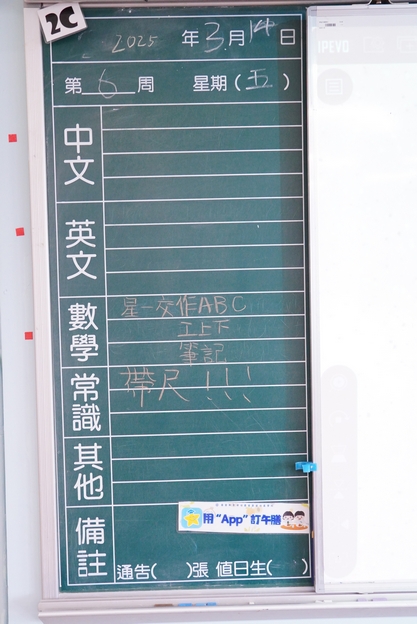 2C
2025年3月14日
第6周 星期(五)
中文
英文
數學
星一交作ABC
工上下
筆記
帶尺!!!
常識
其他
備註
用“App”訂午膳
通告( )張 值日生( )
IPEVO